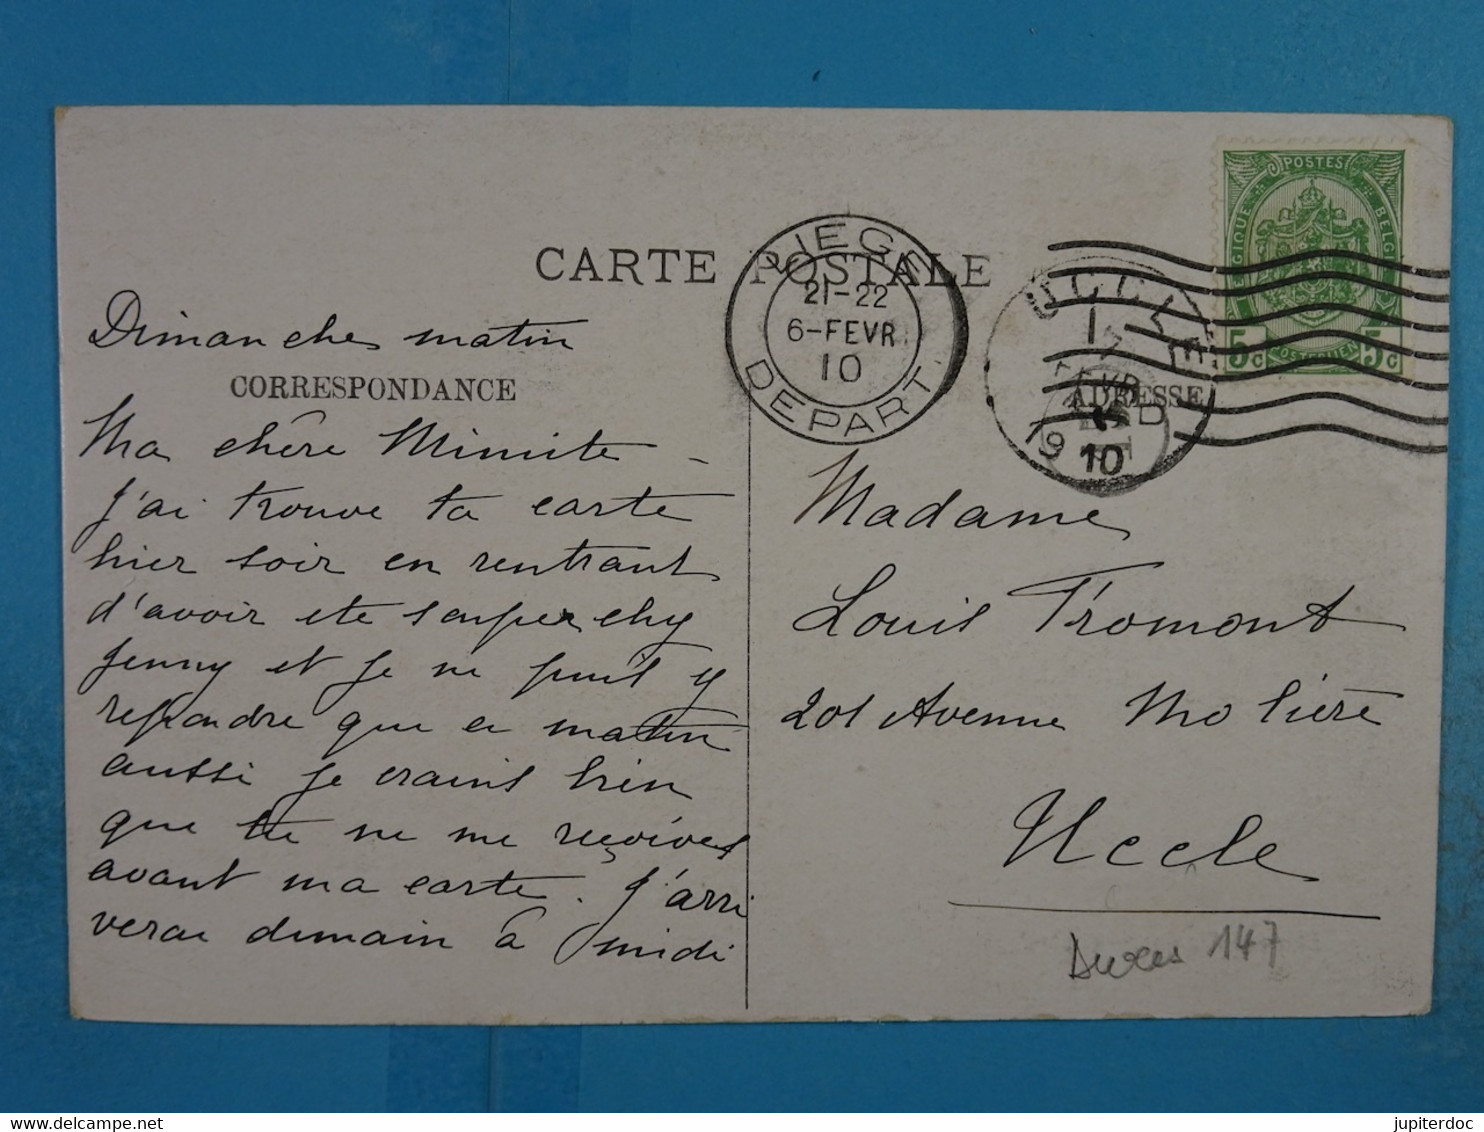 CARTE POSTALE
LIEGE
21-22
6-FEVR
10
DEPART
UCCLE
FEVR
1910
POSTES
BELGIQUE
5c 5c
Dimanche matin
CORRESPONDANCE
Ma chère Mimite -
J'ai trouvé ta carte
hier soir en rentrant
d'avoir été souper chez
Jenny et je ne puis y
repondre que ce matin
aussi je crains bien
que tu ne me reçoives
avant ma carte. J'arri
verai demain à midi
ADRESSE
Madame
Louis Fromont
201 Avenue Molière
Uccle
147
jupiterdoc